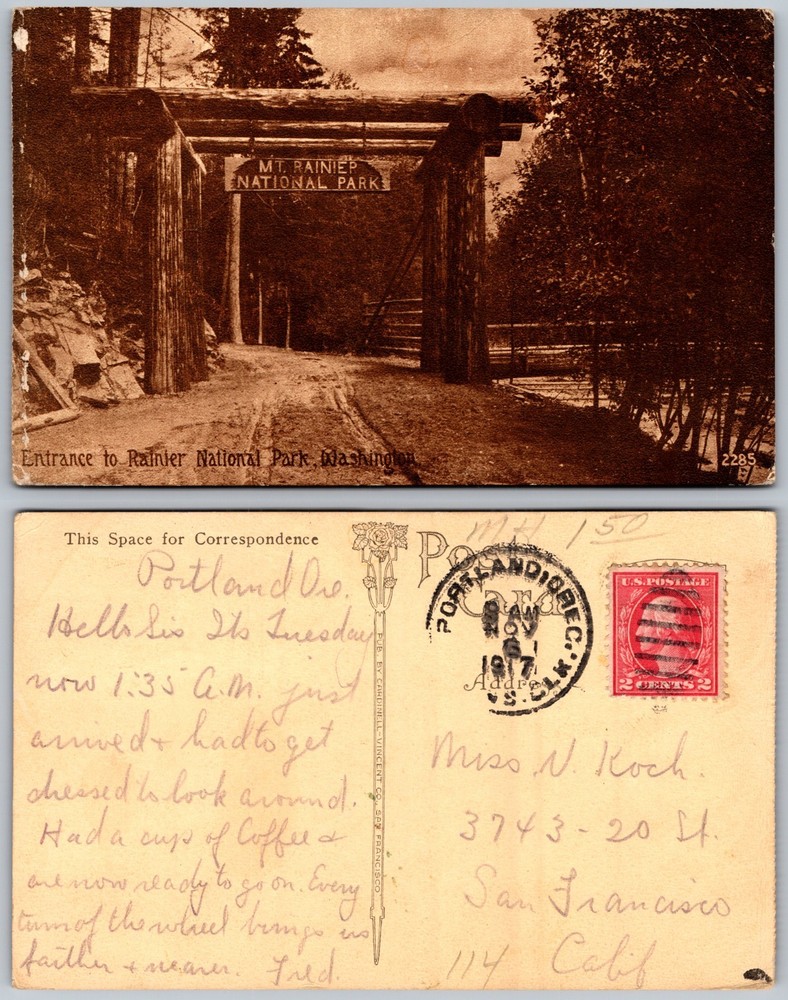 MT. RAINIER
NATIONAL PARK
Entrance to Rainier National Park, Washington.
2285
This Space for Correspondence
Portland Ore.
Hello Sis Its Tuesday
now 1:35 A.M. just
arrived & had to get
dressed to look around.
Had a cup of Coffee &
are now ready to go on. Every
turn of the wheel brings us
farther & nearer. Fred.
PUB. BY CARDINELL-VINCENT CO. SAN FRANCISCO
MH 1 50
Post
Card
Address
PORTLAND, OREG.
AM
NOV
6
1917
S. BLK.
U.S. POSTAGE
2 CENTS 2
Miss. V. Koch.
3743 - 20 St.
San Francisco
114 Calif